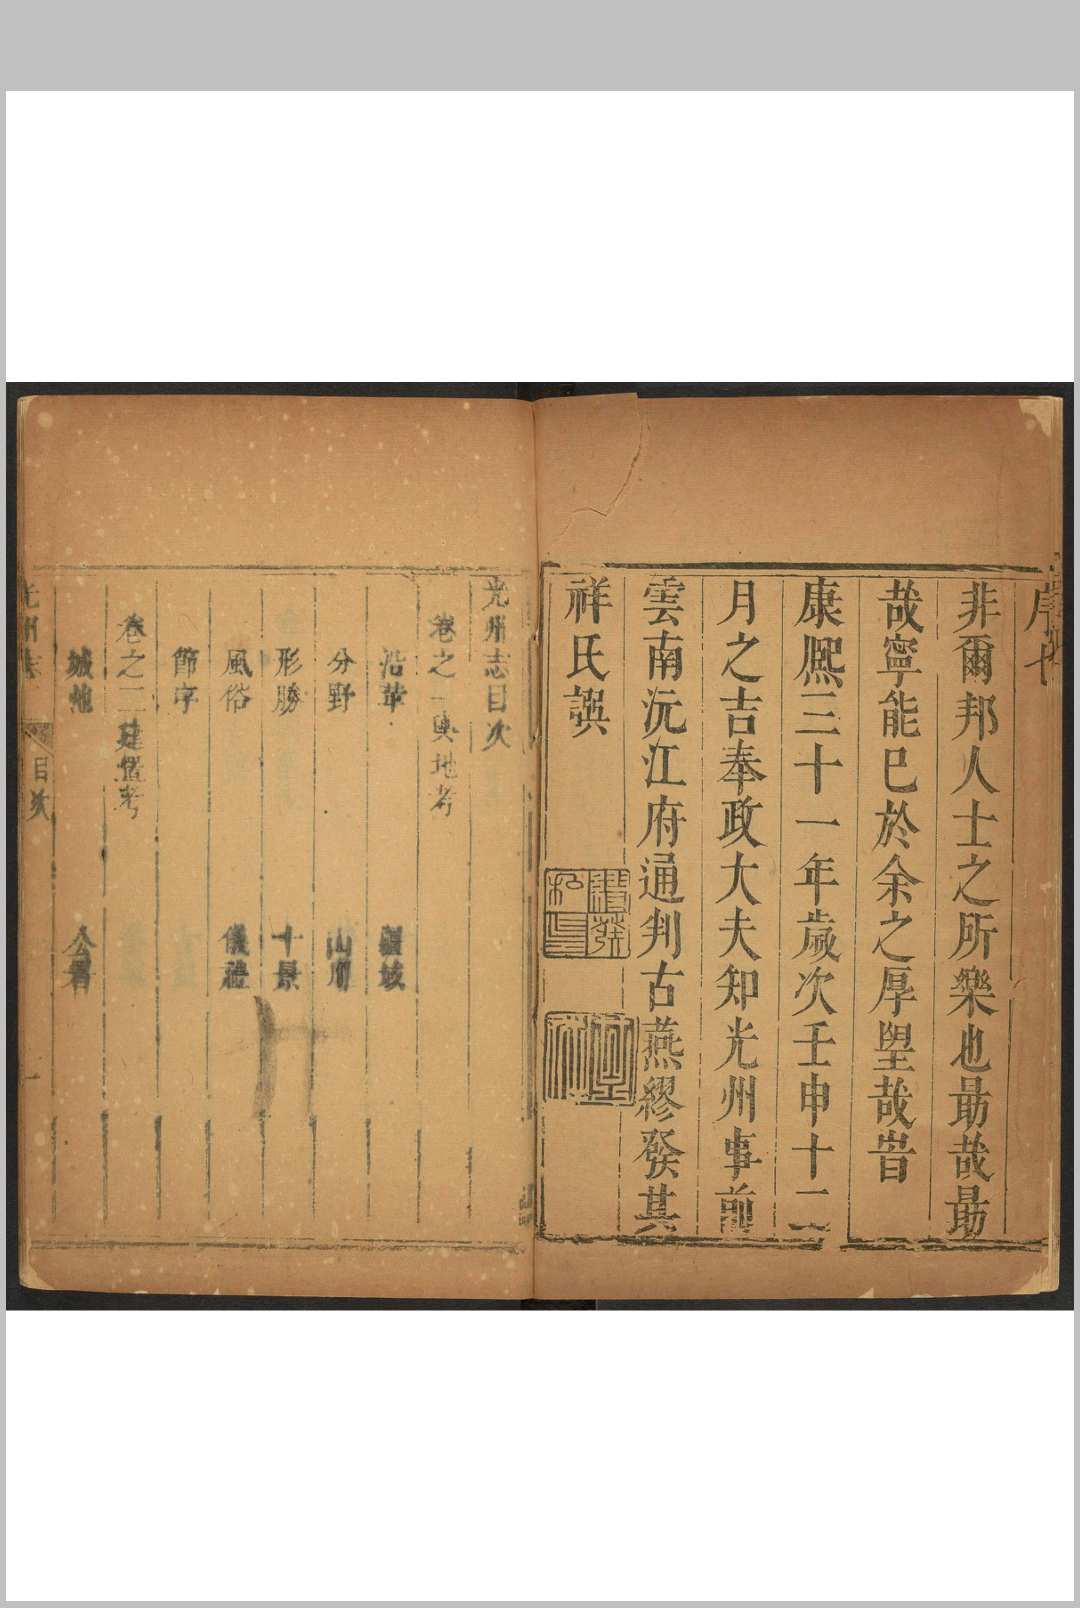 非爾邦人士之所樂也最哉最
哉寧能已於余之厚望哉旹
康熈三十一年歲次壬申十二
月之吉奉政大夫知光州事前
雲南沅江府通判古燕繆發其
祥氏譔
光州志目次
卷之一輿地考
沿革 疆域
分野 山川
形勝 十景
風俗 儀禮
節序
卷之二建置考
城池 公署
光州志 目次 一